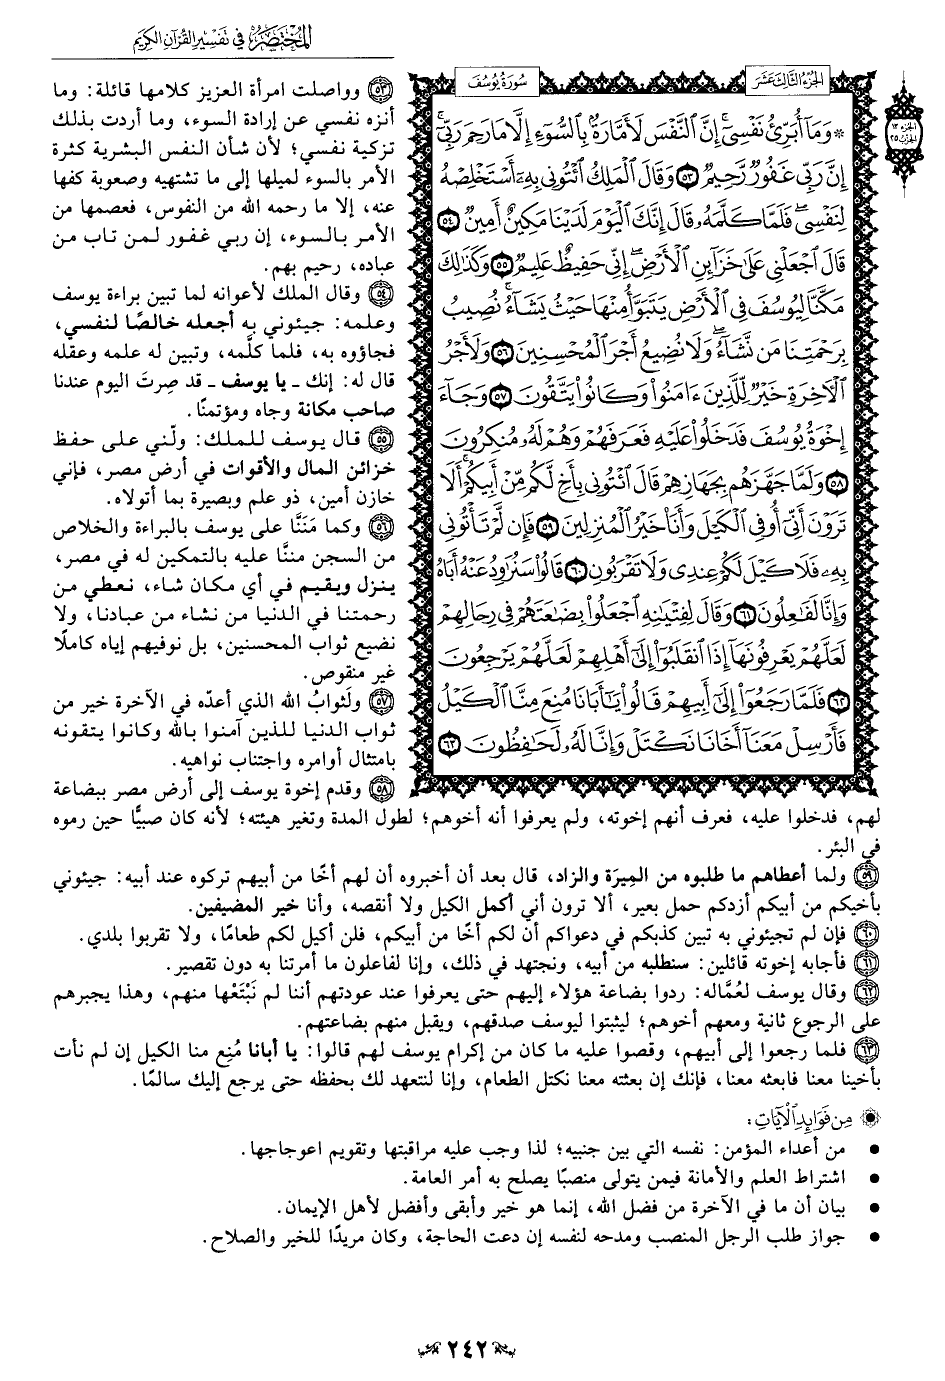 المختصر في تفسير القرآن الكريم
الجزء الثالث عشر
سورة يوسف
الجزء ١٣
الحزب ٢٥
* وَمَا أُبَرِّئُ نَفْسِيٓ إِنَّ ٱلنَّفْسَ لَأَمَّارَةُۢ بِٱلسُّوٓءِ إِلَّا مَا رَحِمَ رَبِّيٓ
إِنَّ رَبِّي غَفُورٌ رَّحِيمٌ ٥٣ وَقَالَ ٱلْمَلِكُ ٱئْتُونِي بِهِۦٓ أَسْتَخْلِصْهُ
لِنَفْسِي فَلَمَّا كَلَّمَهُۥ قَالَ إِنَّكَ ٱلْيَوْمَ لَدَيْنَا مَكِينٌ أَمِينٌ ٥٤
قَالَ ٱجْعَلْنِي عَلَىٰ خَزَآئِنِ ٱلْأَرْضِ إِنِّي حَفِيظٌ عَلِيمٌ ٥٥ وَكَذَٰلِكَ
مَكَّنَّا لِيُوسُفَ فِي ٱلْأَرْضِ يَتَبَوَّأُ مِنْهَا حَيْثُ يَشَآءُ نُصِيبُ
بِرَحْمَتِنَا مَن نَّشَآءُ وَلَا نُضِيعُ أَجْرَ ٱلْمُحْسِنِينَ ٥٦ وَلَأَجْرُ
ٱلْأٓخِرَةِ خَيْرٌ لِّلَّذِينَ ءَامَنُواْ وَكَانُواْ يَتَّقُونَ ٥٧ وَجَآءَ
إِخْوَةُ يُوسُفَ فَدَخَلُواْ عَلَيْهِ فَعَرَفَهُمْ وَهُمْ لَهُۥ مُنكِرُونَ
٥٨ وَلَمَّا جَهَّزَهُم بِجَهَازِهِمْ قَالَ ٱئْتُونِي بِأَخٍ لَّكُم مِّنْ أَبِيكُمْ أَلَا
تَرَوْنَ أَنِّيٓ أُوفِي ٱلْكَيْلَ وَأَنَا خَيْرُ ٱلْمُنزِلِينَ ٥٩ فَإِن لَّمْ تَأْتُونِي
بِهِۦ فَلَا كَيْلَ لَكُمْ عِندِي وَلَا تَقْرَبُونِ ٦٠ قَالُواْ سَنُرَٰوِدُ عَنْهُ أَبَاهُ
وَإِنَّا لَفَٰعِلُونَ ٦١ وَقَالَ لِفِتْيَٰنِهِ ٱجْعَلُواْ بِضَٰعَتَهُمْ فِي رِحَالِهِمْ
لَعَلَّهُمْ يَعْرِفُونَهَآ إِذَا ٱنقَلَبُوٓاْ إِلَىٰٓ أَهْلِهِمْ لَعَلَّهُمْ يَرْجِعُونَ
٦٢ فَلَمَّا رَجَعُوٓاْ إِلَىٰٓ أَبِيهِمْ قَالُواْ يَٰٓأَبَانَا مُنِعَ مِنَّا ٱلْكَيْلُ
فَأَرْسِلْ مَعَنَآ أَخَانَا نَكْتَلْ وَإِنَّا لَهُۥ لَحَٰفِظُونَ ٦٣
٥٣ وواصلت امرأة العزيز كلامها قائلة: وما
أنزه نفسي عن إرادة السوء، وما أردت بذلك
تزكية نفسي؛ لأن شأن النفس البشرية كثرة
الأمر بالسوء لميلها إلى ما تشتهيه وصعوبة كفها
عنه، إلا ما رحمه الله من النفوس، فعصمها من
الأمر بالسوء، إن ربي غفور لمن تاب من
عباده، رحيم بهم.
٥٤ وقال الملك لأعوانه لما تبين براءة يوسف
وعلمه: جيئوني به أجعله خالصًا لنفسي،
فجاؤوه به، فلما كلَّمه، وتبين له علمه وعقله
قال له: إنك ـ يا يوسف ـ قد صِرتَ اليوم عندنا
صاحب مكانة وجاه ومؤتمنًا.
٥٥ قال يوسف للملك: ولّني على حفظ
خزائن المال والأقوات في أرض مصر، فإني
خازن أمين، ذو علم وبصيرة بما أتولاه.
٥٦ وكما مَنَنَّا على يوسف بالبراءة والخلاص
من السجن مننَّا عليه بالتمكين له في مصر،
ينزل ويقيم في أي مكان شاء، نعطي من
رحمتنا في الدنيا من نشاء من عبادنا، ولا
نضيع ثواب المحسنين، بل نوفيهم إياه كاملًا
غير منقوص.
٥٧ ولَثوابُ الله الذي أعدّه في الآخرة خير من
ثواب الدنيا للذين آمنوا بالله وكانوا يتقونه
بامتثال أوامره واجتناب نواهيه.
٥٨ وقدم إخوة يوسف إلى أرض مصر ببضاعة
لهم، فدخلوا عليه، فعرف أنهم إخوته، ولم يعرفوا أنه أخوهم؛ لطول المدة وتغير هيئته؛ لأنه كان صبيًّا حين رموه
في البئر.
٥٩ ولما أعطاهم ما طلبوه من المِيرَة والزاد، قال بعد أن أخبروه أن لهم أخًا من أبيهم تركوه عند أبيه: جيئوني
بأخيكم من أبيكم أزدكم حمل بعير، ألا ترون أني أكمل الكيل ولا أنقصه، وأنا خير المضيفين.
٦٠ فإن لم تجيئوني به تبين كذبكم في دعواكم أن لكم أخًا من أبيكم، فلن أكيل لكم طعامًا، ولا تقربوا بلدي.
٦١ فأجابه إخوته قائلين: سنطلبه من أبيه، ونجتهد في ذلك، وإنا لفاعلون ما أمرتنا به دون تقصير.
٦٢ وقال يوسف لعُمَّاله: ردوا بضاعة هؤلاء إليهم حتى يعرفوا عند عودتهم أننا لم نَبْتَعْها منهم، وهذا يجبرهم
على الرجوع ثانية ومعهم أخوهم؛ ليثبتوا ليوسف صدقهم، ويقبل منهم بضاعتهم.
٦٣ فلما رجعوا إلى أبيهم، وقصوا عليه ما كان من إكرام يوسف لهم قالوا: يا أبانا مُنِع منا الكيل إن لم نأت
بأخينا معنا فابعثه معنا، فإنك إن بعثته معنا نكتل الطعام، وإنا لنتعهد لك بحفظه حتى يرجع إليك سالمًا.
من فوائد الآيات:
• من أعداء المؤمن: نفسه التي بين جنبيه؛ لذا وجب عليه مراقبتها وتقويم اعوجاجها.
• اشتراط العلم والأمانة فيمن يتولى منصبًا يصلح به أمر العامة.
• بيان أن ما في الآخرة من فضل الله، إنما هو خير وأبقى وأفضل لأهل الإيمان.
• جواز طلب الرجل المنصب ومدحه لنفسه إن دعت الحاجة، وكان مريدًا للخير والصلاح.
٢٤٢